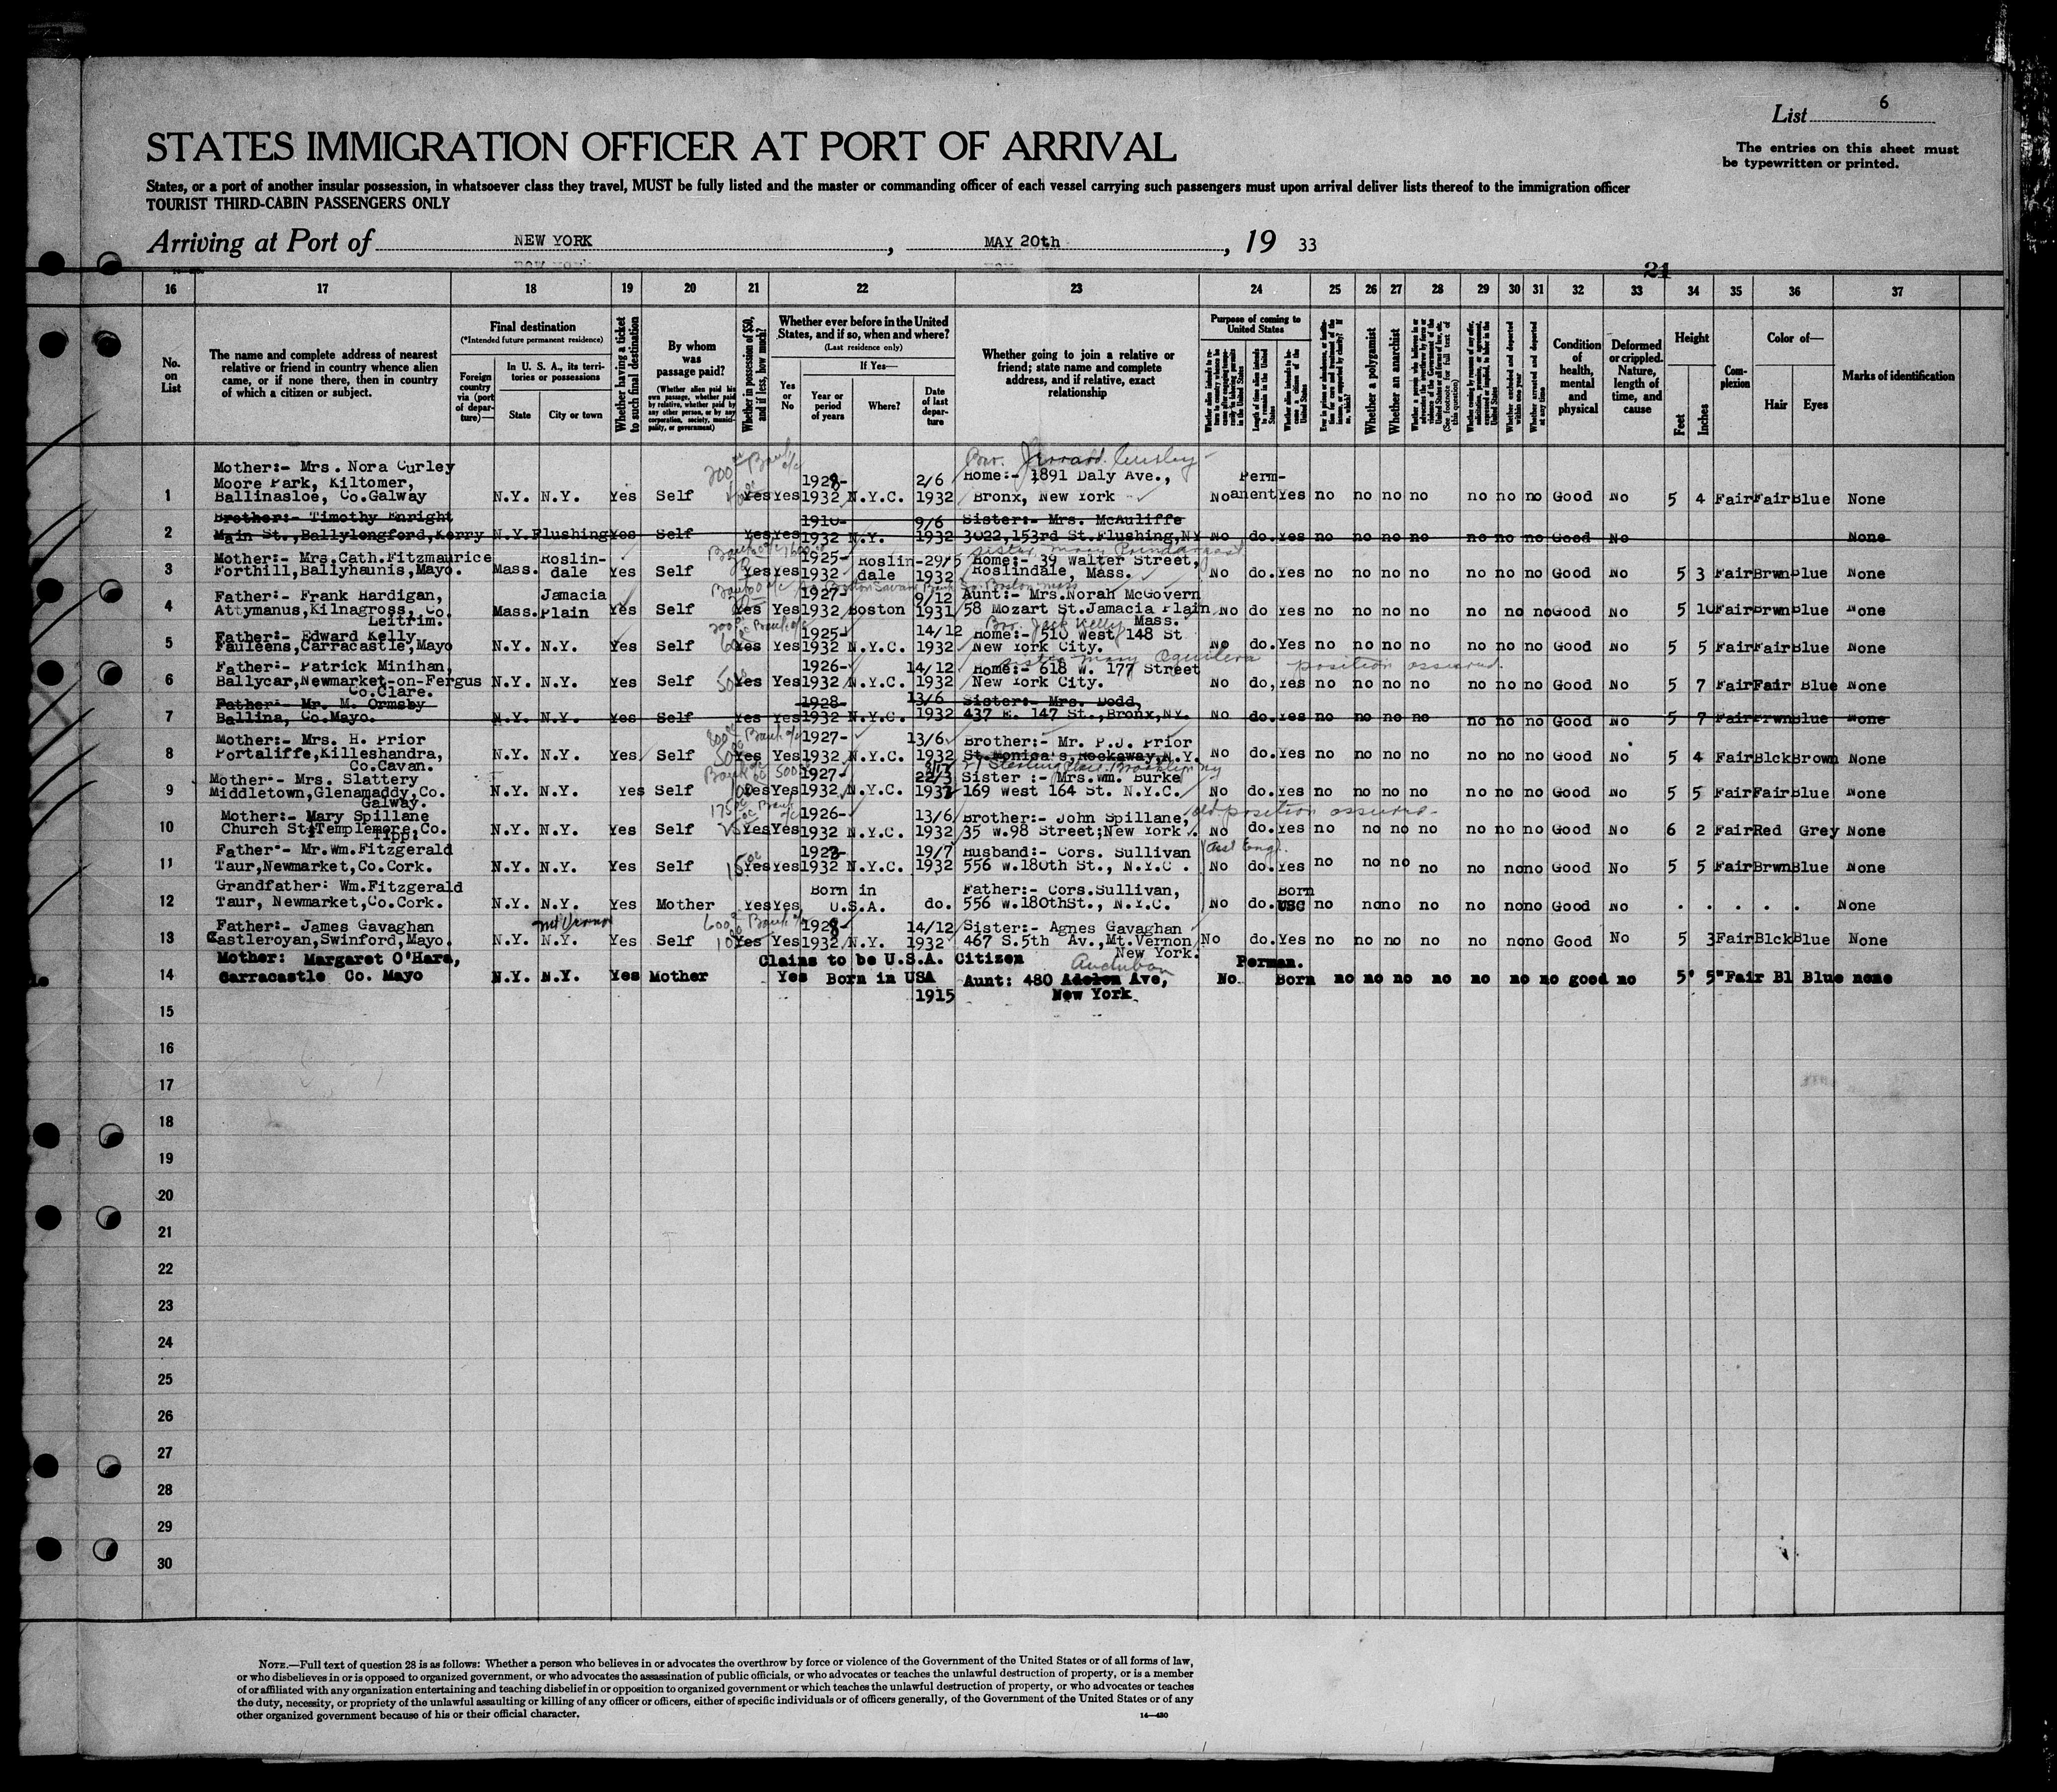 List 6
STATES IMMIGRATION OFFICER AT PORT OF ARRIVAL
The entries on this sheet must
be typewritten or printed.
States, or a port of another insular possession, in whatsoever class they travel, MUST be fully listed and the master or commanding officer of each vessel carrying such passengers must upon arrival deliver lists thereof to the immigration officer
TOURIST THIRD-CABIN PASSENGERS ONLY
Arriving at Port of NEW YORK , MAY 20th , 19 33
21
16 17 18 19 20 21 22 23 24 25 26 27 28 29 30 31 32 33 34 35 36 37
No. on List
The name and complete address of nearest relative or friend in country whence alien came, or if none there, then in country of which a citizen or subject.
Final destination
(*Intended future permanent residence)
Foreign country via (port of departure)—
In U. S. A., its territories or possessions
State City or town
Whether having a ticket to such final destination
By whom was passage paid?
(Whether alien paid his own passage, whether paid by relative, whether paid by any other person, or by any corporation, society, municipality, or government)
Whether in possession of $50, and if less, how much?
Whether ever before in the United States, and if so, when and where?
(Last residence only)
Yes or No
If Yes—
Year or period of years Where? Date of last departure
Whether going to join a relative or friend; state name and complete address, and if relative, exact relationship
Purpose of coming to United States
Length of time alien intends to remain in the United States
Whether alien intends to become a citizen of the United States
Whether a polygamist
Whether an anarchist
Whether excluded and deported within one year
Whether arrested and deported at any time
Condition of health, mental and physical
Deformed or crippled. Nature, length of time, and cause
Height
Feet Inches
Complexion
Color of—
Hair Eyes
Marks of identification
Mother:- Mrs. Nora Curley
Moore Park, Kiltomer, 1928- 2/6 Home:- 1891 Daly Ave., Perm-
1 Ballinasloe, Co.Galway N.Y. N.Y. Yes Self Yes Yes 1932 N.Y.C. 1932 Bronx, New York No anent Yes no no no no no no no Good No 5 4 Fair Fair Blue None
Brother:- Timothy Enright 1910- 9/6 Sister:- Mrs. McAuliffe
2 Main St.,Ballylongford,Kerry N.Y. Flushing Yes Self Yes Yes 1932 N.Y. 1932 3022,153rd St.Flushing,NY No do. Yes no no no no no no no Good No None
Mother:- Mrs.Cath.Fitzmaurice Roslin- 1925- Roslin- 29/5 Home:- 39 Walter Street,
3 Forthill,Ballyhaunis,Mayo. Mass. dale Yes Self Yes Yes 1932 dale 1932 Roslindale, Mass. No do. Yes no no no no no no no Good No 5 3 Fair Brwn Blue None
Father:- Frank Hardigan, Jamacia 1927- 9/12 Aunt:- Mrs.Norah McGovern
4 Attymanus,Kilnagross, Co. Mass. Plain Yes Self Yes Yes 1932 Boston 1931 58 Mozart St.Jamacia Plain No do Yes no no no no no no no Good No 5 10 Fair Brwn Blue None
Leitrim. Bro. Jack Kelly Mass.
Father:- Edward Kelly 1925- 14/12 Home:- 510 West 148 St
5 Fauleens,Carracastle,Mayo N.Y. N.Y. Yes Self Yes Yes 1932 N.Y.C. 1932 New York City. No do. Yes no no no no no no no Good No 5 5 Fair Fair Blue None
Father:- Patrick Minihan, 1926- 14/12 Home:- 618 W. 177 Street position assured.
6 Ballycar,Newmarket-on-Fergus N.Y. N.Y. Yes Self Yes Yes 1932 N.Y.C. 1932 New York City. No do, Yes no no no no no no no Good No 5 7 Fair Fair Blue None
Co.Clare.
Father- Mr. M. Ormsby 1928- 13/6 Sister:- Mrs. Dodd,
7 Ballina, Co.Mayo. N.Y. N.Y. Yes Self Yes Yes 1932 N.Y.C. 1932 437 E. 147 St.,Bronx,NY. No do. Yes no no no no no no no Good No 5 7 Fair Brwn Blue None
Mother:- Mrs. H. Prior 1927- 13/6 Brother:- Mr. P.J. Prior
8 Portaliffe,Killeshandra, N.Y. N.Y. Yes Self Yes Yes 1932 N.Y.C. 1932 St.Monica's,Rockaway,N.Y. No do. Yes no no no no no no no Good No 5 4 Fair Blck Brown None
Co.Cavan. Sterling Place, Brooklyn ny
Mother-- Mrs. Slattery 1927- 22/3 Sister :- Mrs.Wm. Burke
9 Middletown,Glenamaddy,Co. N.Y. N.Y. Yes Self Yes Yes 1932 N.Y.C. 1932 169 West 164 St. N.Y.C. No do. Yes no no no no no no no Good No 5 5 Fair Fair Blue None
Galway.
Mother:- Mary Spillane 1926- 13/6 Brother:- John Spillane, old position assured-
10 Church St,Templemore,Co. N.Y. N.Y. Yes Self Yes Yes 1932 N.Y.C. 1932 35 W.98 Street;New York. No do. Yes no no no no no no no Good No 6 2 Fair Red Grey None
Tipp.
Father-- Mr.Wm.Fitzgerald 19/7 Husband:- Cors. Sullivan
11 Taur,Newmarket,Co.Cork. N.Y. N.Y. Yes Self Yes Yes 1932 N.Y.C. 1932 556 W.180th St., N.Y.C. No do. Yes no no no no no no no Good No 5 5 Fair Brwn Blue None
Grandfather: Wm.Fitzgerald Born in Father:- Cors.Sullivan, Born
12 Taur, Newmarket,Co.Cork. N.Y. N.Y. Yes Mother Yes Yes U.S.A. do. 556 W.180thSt., N.Y.C. No do. USC no no no no no no no Good No . . . . . None
Father:- James Gavaghan Mt Vernon 1928- 14/12 Sister:- Agnes Gavaghan
13 Castleroyan,Swinford,Mayo. N.Y. N.Y. Yes Self Yes Yes 1932 N.Y. 1932 467 S.5th Av.,Mt.Vernon No do. Yes no no no no no no no Good No 5 3 Fair Blck Blue None
New York.
Mother: Margaret O'Hara, Claims to be U.S.A. Citizen Audubon Perman.
14 Carracastle Co. Mayo N.Y. N.Y. Yes Mother Yes Born in USA Aunt: 480 Ave, No Born no no no no no no no good no 5' 5" Fair Bl Blue none
1915 New York
15
16
17
18
19
20
21
22
23
24
25
26
27
28
29
30
NOTE.—Full text of question 28 is as follows: Whether a person who believes in or advocates the overthrow by force or violence of the Government of the United States or of all forms of law,
or who disbelieves in or is opposed to organized government, or who advocates the assassination of public officials, or who advocates or teaches the unlawful destruction of property, or is a member
of or affiliated with any organization entertaining and teaching disbelief in or opposition to organized government or which teaches the unlawful destruction of property, or who advocates or teaches
the duty, necessity, or propriety of the unlawful assaulting or killing of any officer or officers, either of specific individuals or of officers generally, of the Government of the United States or of any
other organized government because of his or their official character.
14—430